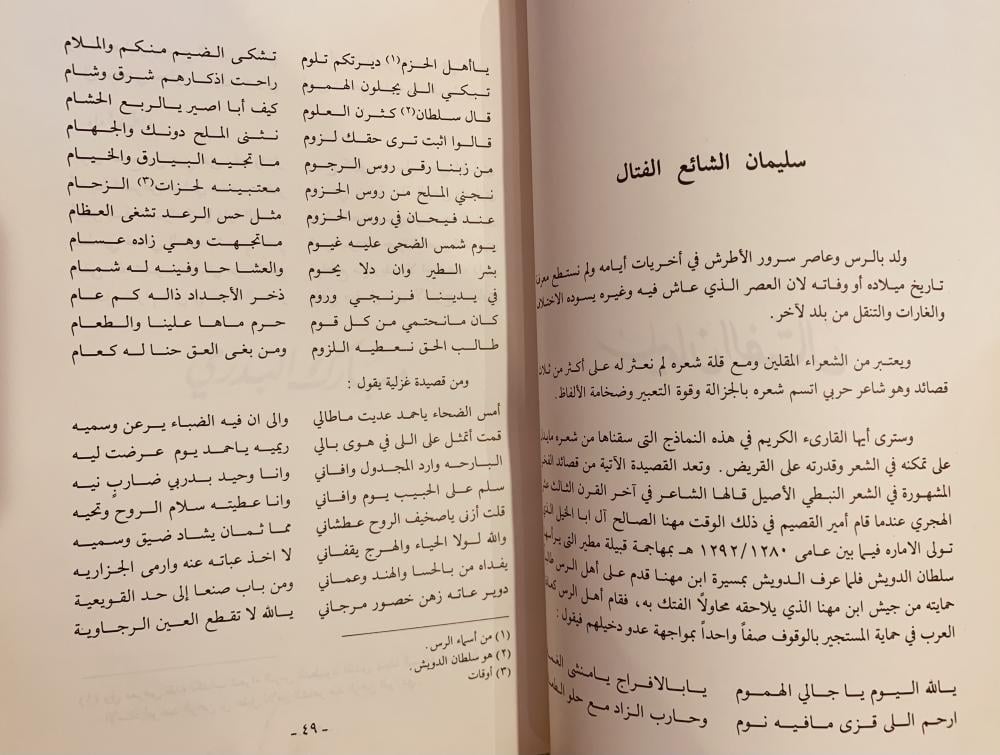 سليمان الشائع الفتال
ولد بالرس وعاصر سرور الأطرش في أخريات أيامه ولم نستطع معرفة
تاريخ ميلاده أو وفاته لان العصر الذي عاش فيه وغيره يسوده
والغارات والتنقل من بلد لآخر.
ويعتبر من الشعراء المقلين ومع قلة شعره لم نعثر له على أكثر من ثلاث
قصائد وهو شاعر حربي اتسم شعره بالجزالة وقوة التعبير وضخامة الألفاظ.
وسترى أيها القارىء الكريم في هذه النماذج التى سقناها من شعره
على تمكنه في الشعر وقدرته على القريض. وتعد القصيدة الآتية من قصائد
المشهورة في الشعر النبطي الأصيل قالها الشاعر في آخر القرن الثالث عشر
الهجري عندما قام أمير القصيم في ذلك الوقت مهنا الصالح آل ابا الخيل الذي
تولى الاماره فيما بين عامى ١٢٩٢/١٢٨٠ هـ بمهاجمة قبيلة مطير التى يرأسها
سلطان الدويش فلما عرف الدويش بمسيرة ابن مهنا قدم على أهل الرس
حمايته من جيش ابن مهنا الذي يلاحقه محاولًا الفتك به، فقام أهل الرس
العرب في حماية المستجير بالوقوف صفاً واحداً بمواجهة عدو دخيلهم فيقول:
يالله اليوم يا جالي الهموم يابالافراج يامنشى
ارحم اللى قزى مافيه نوم وحارب الزاد مع حلو
ياأهل الحزم (١) ديرتكم تلوم تشكى الضيم منكم والملام
تبكي اللى يجلون الهموم راحت اذكارهم شرق وشام
قال سلطان (٢) كثرن العلوم كيف أبا اصير يالربع الحشام
قالوا اثبت ترى حقك لزوم نثنى الملح دونك والجهام
من زبنا رقى روس الرجوم ما تجيه البيارق والخيام
نجني الملح من روس الحزوم معتبينه لحزات (٣) الزحام
عند فيحان في روس الحزوم مثل حس الرعد تشغى العظام
يوم شمس الضحى عليه غيوم ماتجهت وهي زاده عسام
بشر الطير وان دلا يحوم والعشا حا وفينه له شمام
في يدينا فرنجي وروم ذخر الأجداد ذاله كم عام
كان مانحتمي من كل قوم حرم ماها علينا والطعام
طالب الحق نعطيه اللزوم ومن بغى العق حنا له كعام
ومن قصيدة غزلية يقول:
أمس الضحاء ياحمد عديت ماطالي والى ان فيه الضباء يرعن وسميه
قمت أتمثل على اللى في هوى بالي ريميه ياحمد يوم عرضت ليه
البارحه وارد المجدول وافاني وانا وحيد بدربي ضاربٍ نيه
سلم على الحبيب يوم وافاني وانا عطيته سلام الروح وتحيه
قلت أزنى ياصخيف الروح عطشاني مما ثمان يشاد ضيق وسميه
والله لولا الحياء والهرج يقفاني لا اخذ عباته عنه وارمى الجزاريه
يفداه من بالحسا والهند وعماني ومن باب صنعا إلى حد القويعية
دوير عاته زهن خصور مرجاني يالله لا تقطع العين الرجاوية
(١) من أسماء الرس.
(٢) هو سلطان الدويش.
(٣) أوقات
- ٤٩ -